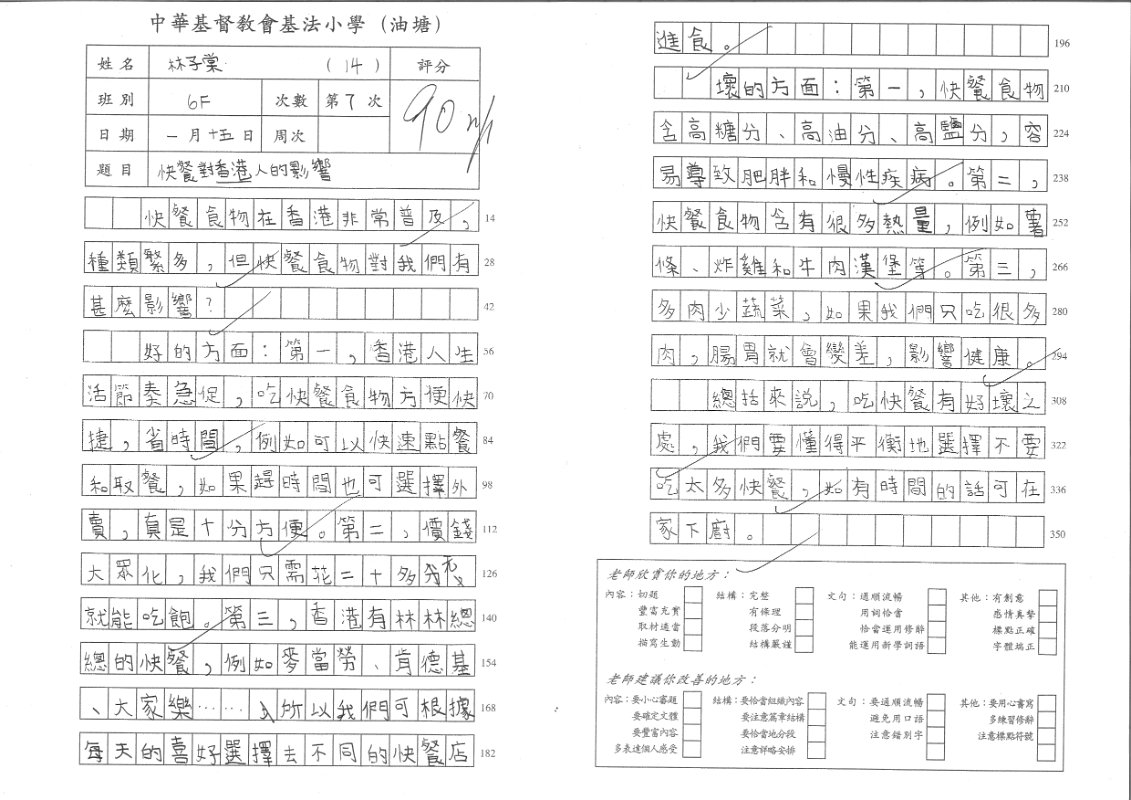 中華基督教會基法小學（油塘）
姓名 林子棠 (14) 評分
班別 6F 次數 第7次 90
日期 一月十五日 周次
題目 快餐對香港人的影響
快餐食物在香港非常普及， 14
種類繁多，但快餐食物對我們有 28
甚麼影響？ 42
好的方面：第一，香港人生 56
活節奏急促，吃快餐食物方便快 70
捷，省時間，例如可以快速點餐 84
和取餐，如果趕時間也可選擇外 98
賣，真是十分方便。第二，價錢 112
大眾化，我們只需花二十多元 126
就能吃飽。第三，香港有林林總 140
總的快餐，例如麥當勞、肯德基 154
、大家樂……所以我們可根據 168
每天的喜好選擇去不同的快餐店 182
進食。 196
壞的方面：第一，快餐食物 210
含高糖分、高油分、高鹽分，容 224
易導致肥胖和慢性疾病。第二， 238
快餐食物含有很多熱量，例如薯 252
條、炸雞和牛肉漢堡等。第三， 266
多肉少蔬菜，如果我們只吃很多 280
肉，腸胃就會變差，影響健康。 294
總括來說，吃快餐有好壞之 308
處，我們要懂得平衡地選擇不要 322
吃太多快餐，如有時間的話可在 336
家下廚。 350
老師欣賞你的地方：
內容：切題 結構：完整 文句：通順流暢 其他：有創意
豐富充實 有條理 用詞恰當 感情真摯
取材適當 段落分明 恰當運用修辭 標點正確
描寫生動 結構嚴謹 能運用新學詞語 字體端正
老師建議你改善的地方：
內容：要小心審題 結構：要恰當組織內容 文句：要通順流暢 其他：要用心書寫
要確定文體 要注意篇章結構 避免用口語 多練習修辭
要豐富內容 要恰當地分段 注意錯別字 注意標點符號
多表達個人感受 注意詳略安排